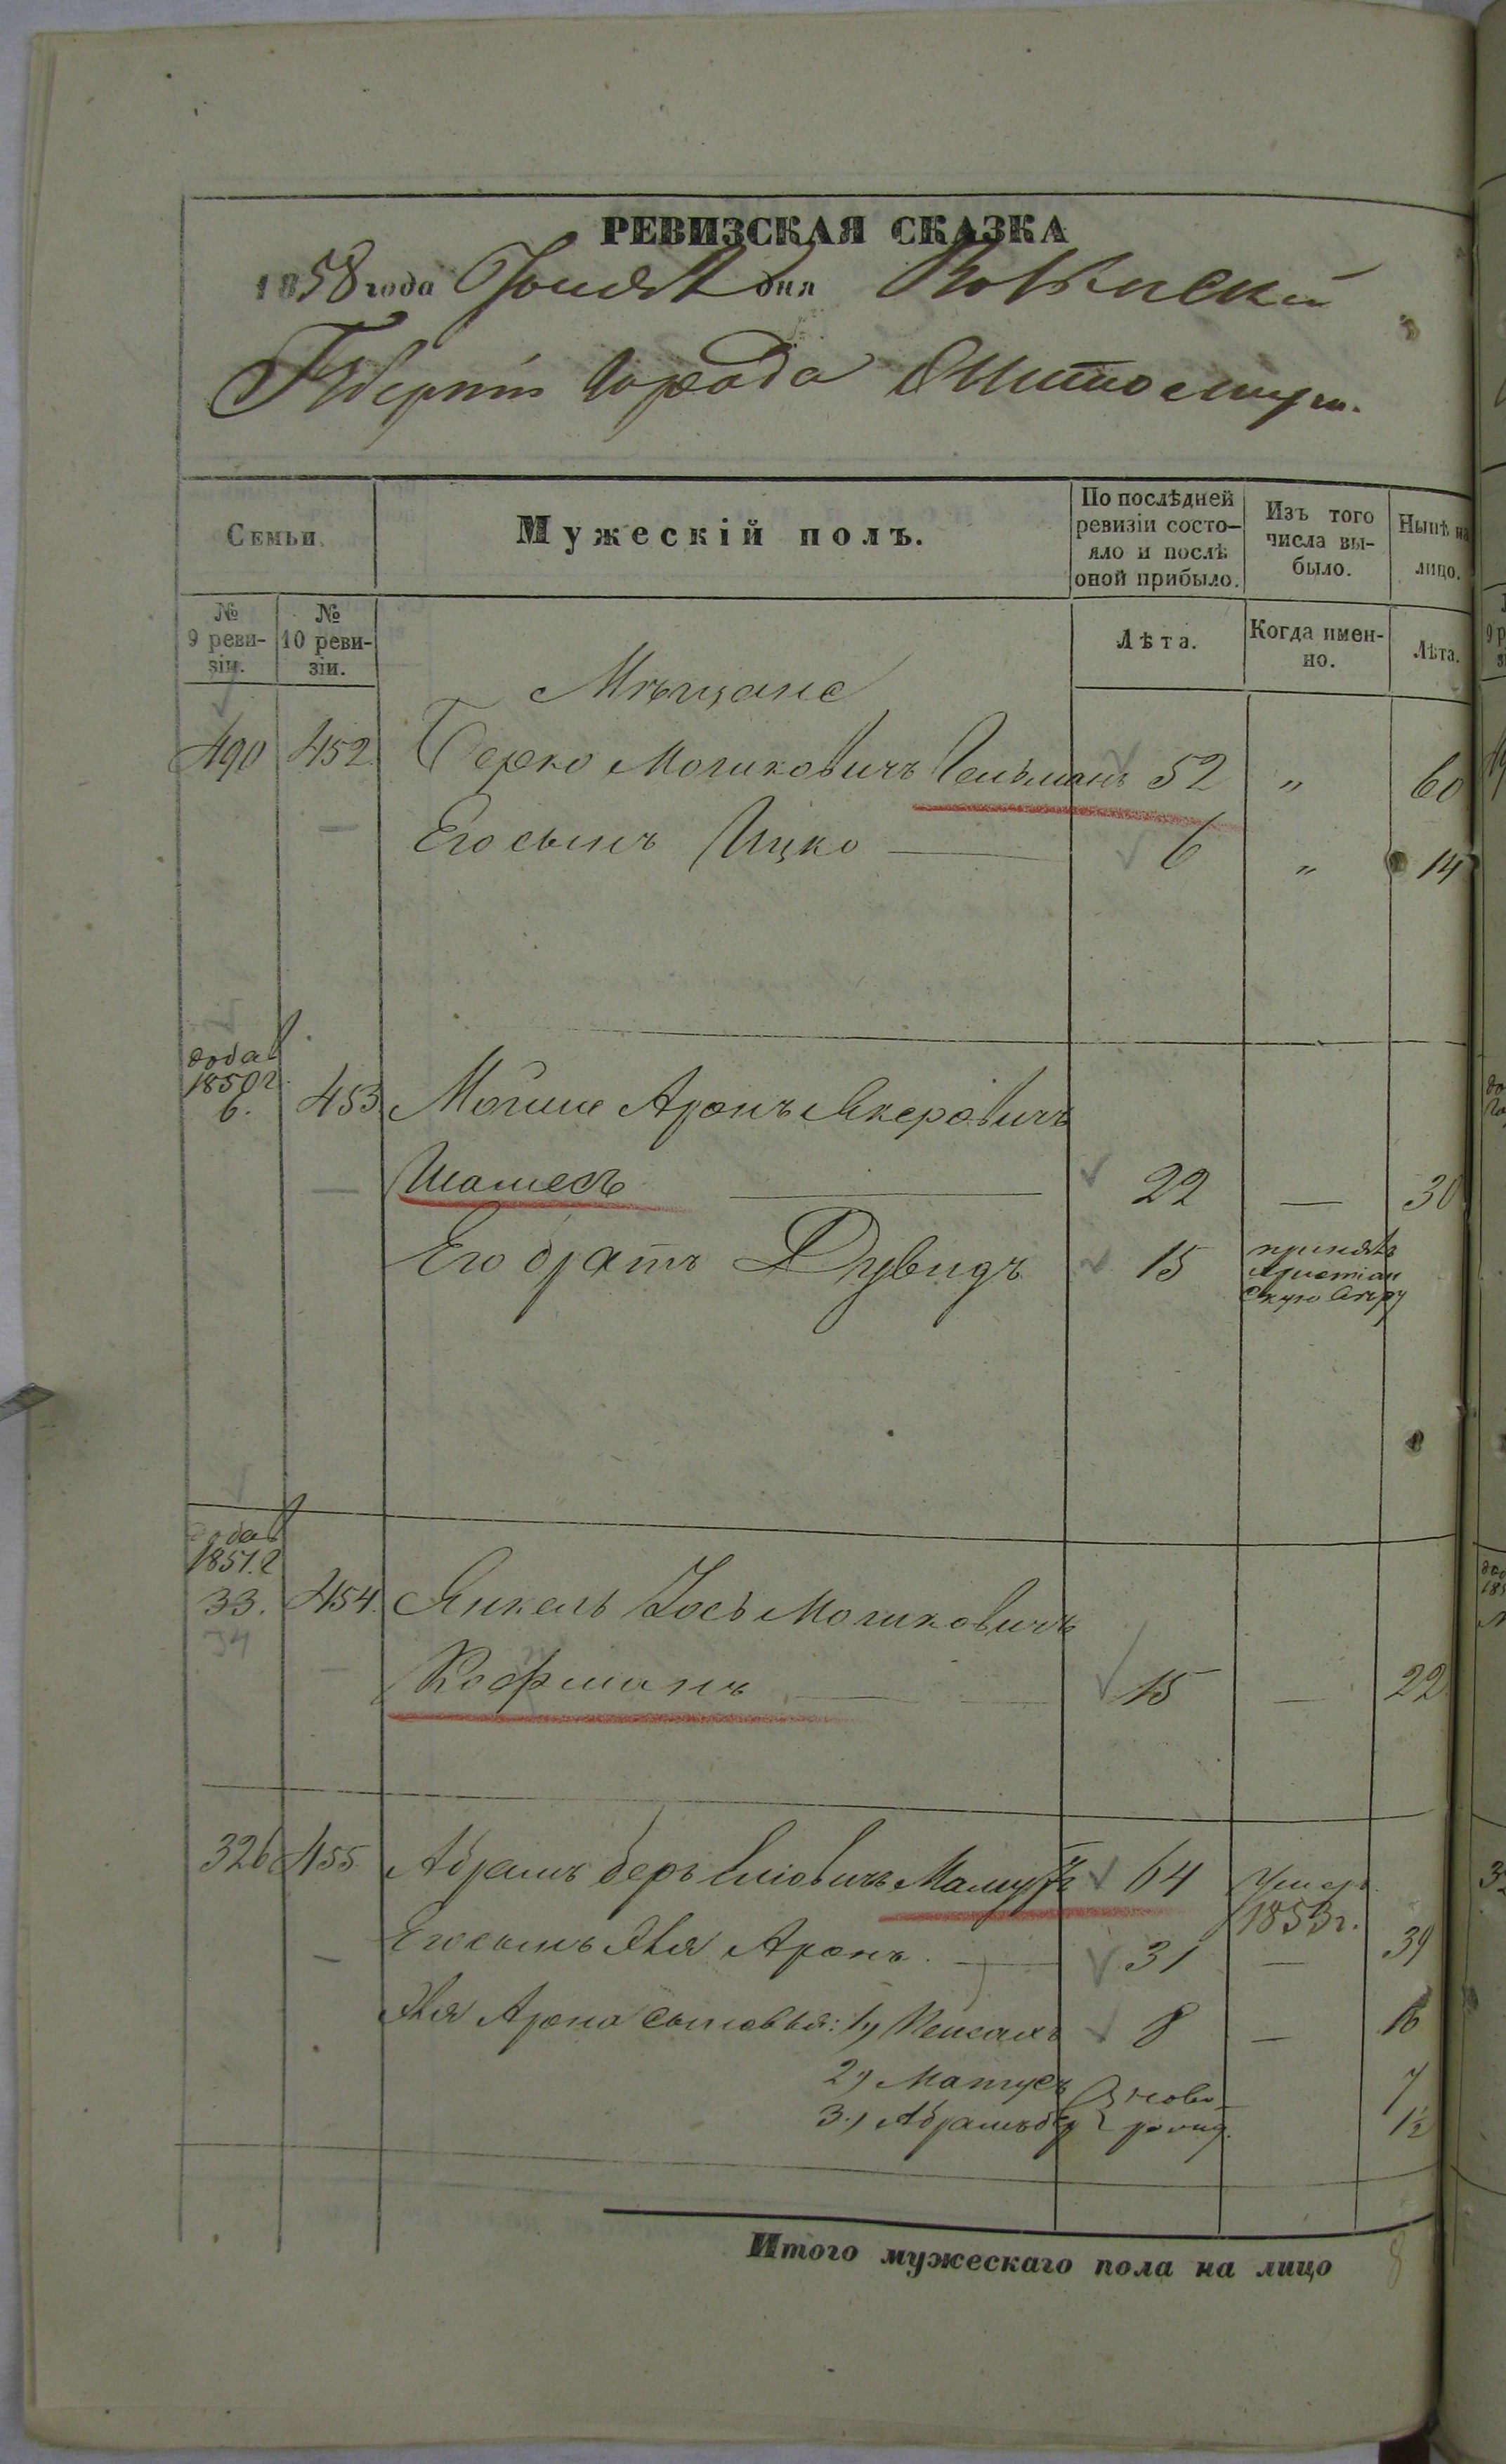 РЕВИЗСКАЯ СКАЗКА
1858 года Іюня 1 дня Кіевской
Губерніи города
Семьи.
Мужескій полъ.
По послѣдней ревизіи состо-
яло и послѣ
оной прибыло.
Изъ того
числа вы-
было.
Нынѣ на
лицо.
№
9 реви-
зіи.
№
10 реви-
зіи.
Лѣта.
Когда имен-
но.
Лѣта.
Мѣщане
490 452 Берко Мошковичъ Гельманъ 52 „ 60
Его сынъ Ицко — 6 „ 14
добав
1850 г.
6. 453 Мойше Аронъ Якеровичъ
Шамесъ — 22 — 30
Его братъ Дувидъ 15 принялъ
христіан
скую вѣру
добав
1851 г
33. 454. Янкель Іось Мошковичъ
34
Кофманъ — 15 — 22
326 455 Абрамъ беръ Еліовичъ 64 умеръ
1853 г.
Его сынъ Аронъ. — 31 — 39
Арона сыновья: 1) Пейсахъ 8 — 16
2) Матусъ ново- 7
3) Абрамъ бер рожд. 1½
Итого мужескаго пола на лицо 8